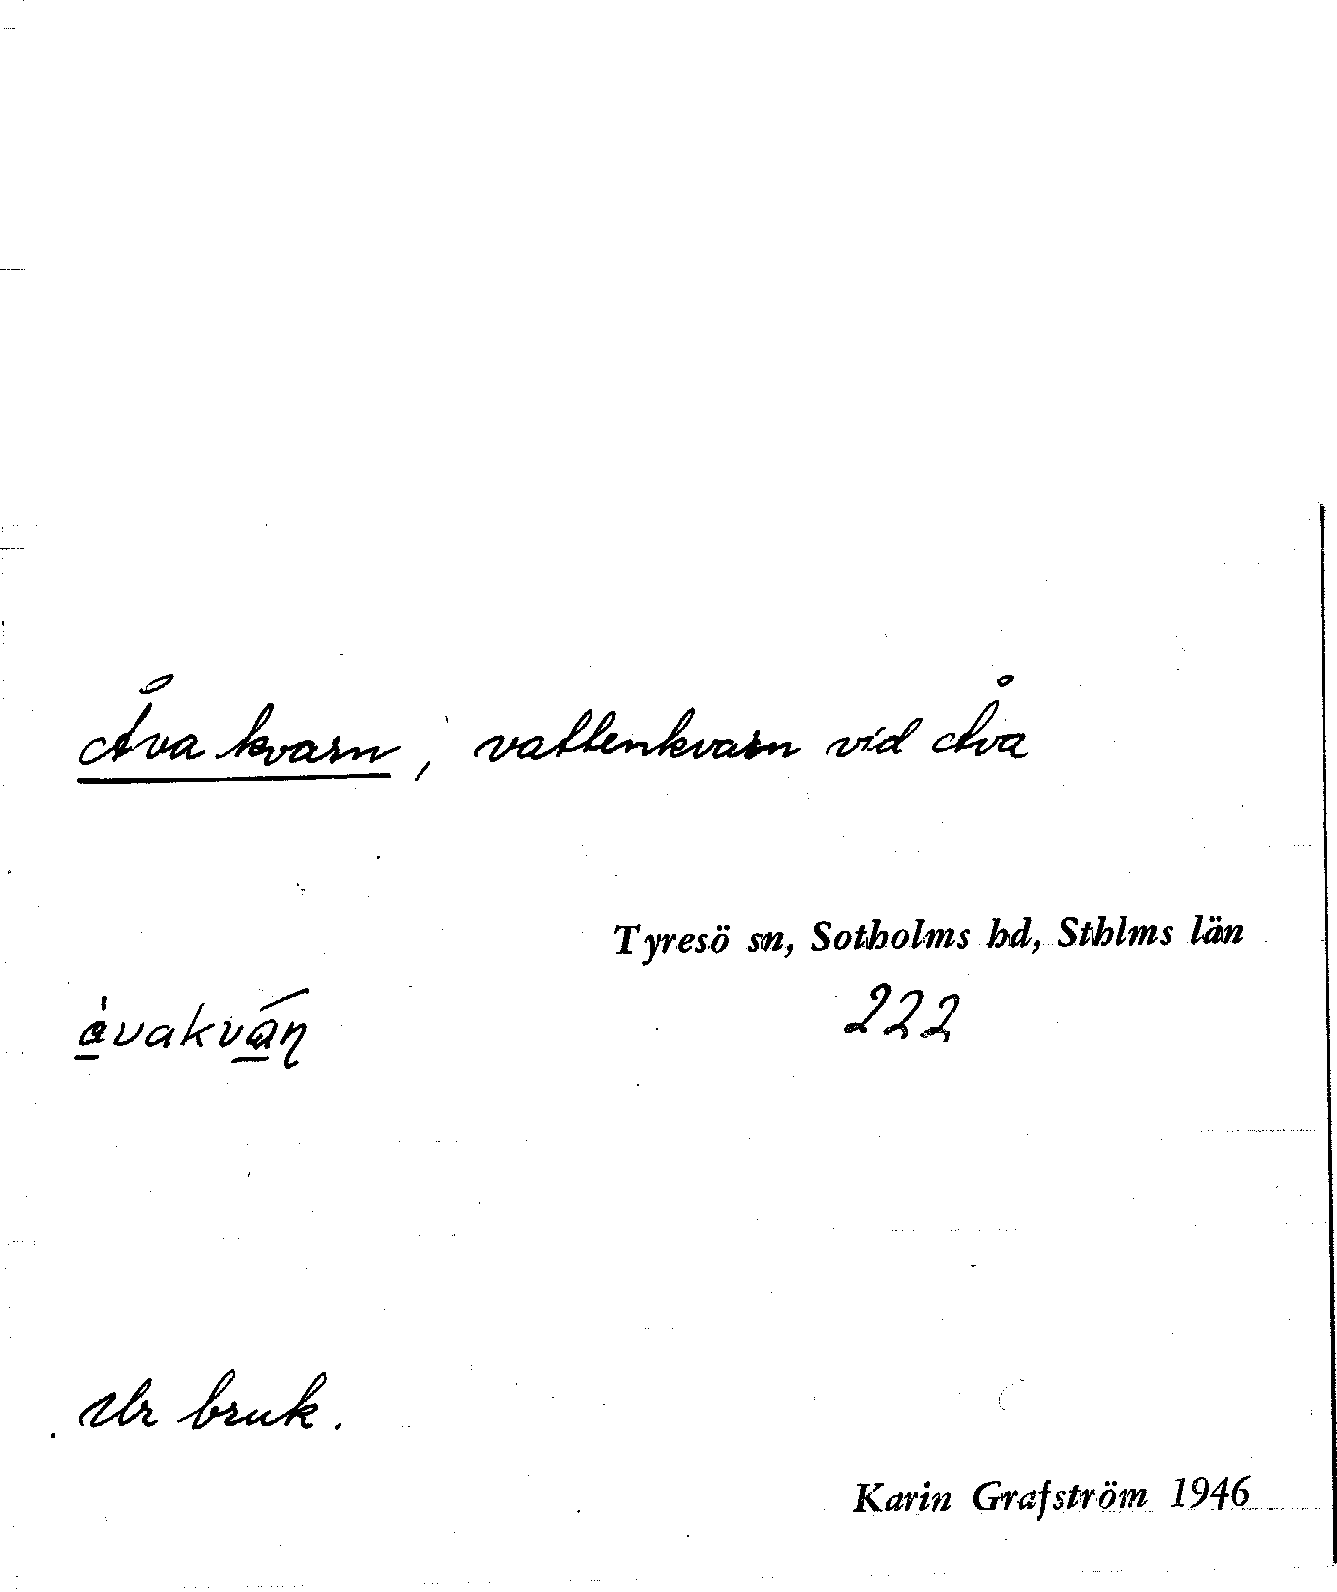 Åva kvarn, vattenkvarn vid Åva
Tyresö sn, Sotholms hd, Sthlms län
222
Ur bruk.
Karin Grafström 1946